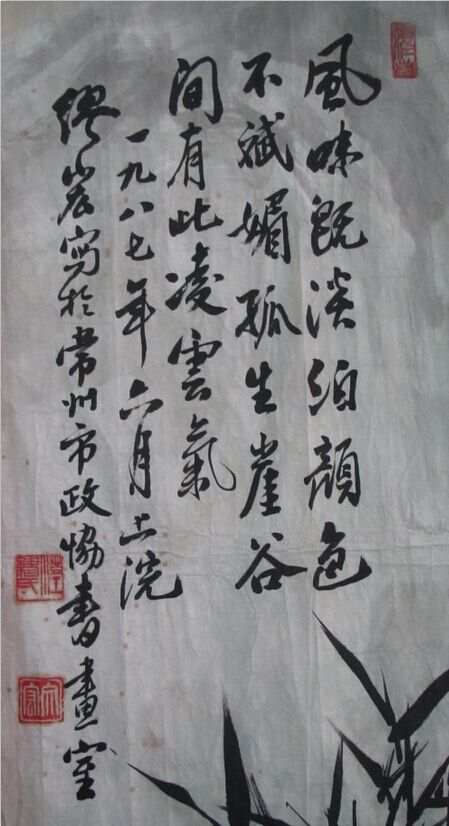 風味既淡泊顏色
不斌媚孤生崖谷
間有此凌雲氣
一九八七年六月上浣
繆寫於常州市政協書畫室